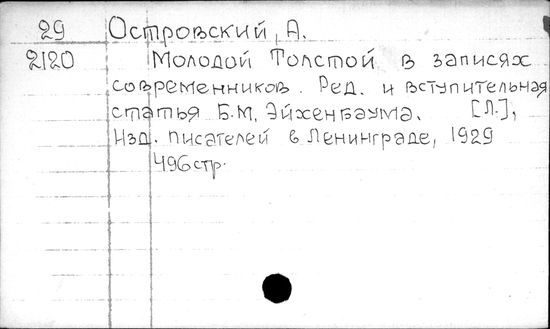 29 Островский, А.
2120 Молодой Толстой в записях
современников. Ред. и вступительная
статья Б.М. Эйхенбаума. [Л.],
Изд. писателей в Ленинграде, 1929
496 стр.